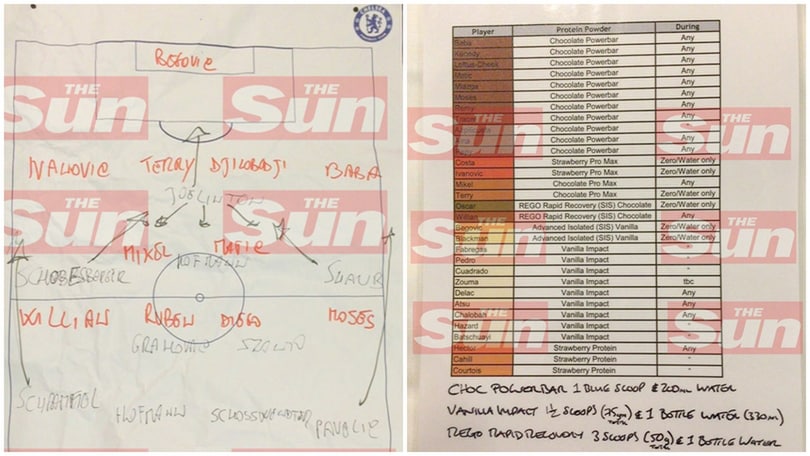 CHELSEA
BEGOVIC
THE Sun
THE Sun
IVANOVIC TERRY DJILOBODJI BABA
JOELINTON
THE Sun
THE Sun
MIKEL MATIC
HOFMANN
SCHOBESBERGER SCHAUB
WILLIAN RUBEN DIEGO MOSES
THE Sun
THE Sun
GRAHOVAC SZANTO
SCHRAMMEL HOFMANN SCHOSSWENDTER PAVELIC
Player Protein Powder During
Baba Chocolate Powerbar Any
Kennedy Chocolate Powerbar Any
Loftus-Cheek Chocolate Powerbar Any
Matic Chocolate Powerbar Any
Miazga Chocolate Powerbar Any
Moses Chocolate Powerbar Any
Remy Chocolate Powerbar Any
Traore Chocolate Powerbar Any
Azpilicueta Chocolate Powerbar Any
Aina Chocolate Powerbar Any
Chocolate Powerbar Any
Costa Strawberry Pro Max Zero/Water only
Ivanovic Strawberry Pro Max Zero/Water only
Mikel Chocolate Pro Max Any
Terry Chocolate Pro Max Zero/Water only
Oscar REGO Rapid Recovery (SIS) Chocolate Zero/Water only
Willian REGO Rapid Recovery (SIS) Chocolate Any
Begovic Advanced Isolated (SIS) Vanilla Zero/Water only
Blackman Advanced Isolated (SIS) Vanilla Zero/Water only
Fabregas Vanilla Impact Any
Pedro Vanilla Impact "
Cuadrado Vanilla Impact "
Zouma Vanilla Impact tbc
Delac Vanilla Impact Any
Atsu Vanilla Impact Any
Chalobah Vanilla Impact Any
Hazard Vanilla Impact "
Batschuayi Vanilla Impact "
Hector Strawberry Protein Any
Cahill Strawberry Protein "
Courtois Strawberry Protein "
THE Sun
THE Sun
THE Sun
THE Sun
THE Sun
THE Sun
CHOC POWERBAR 1 BLUE SCOOP & 200ml WATER
VANILLA IMPACT 1½ SCOOPS (75gm TOTAL) & 1 BOTTLE WATER (330ml)
REGO RAPID RECOVERY 3 SCOOPS (50g TOTAL) & 1 BOTTLE WATER